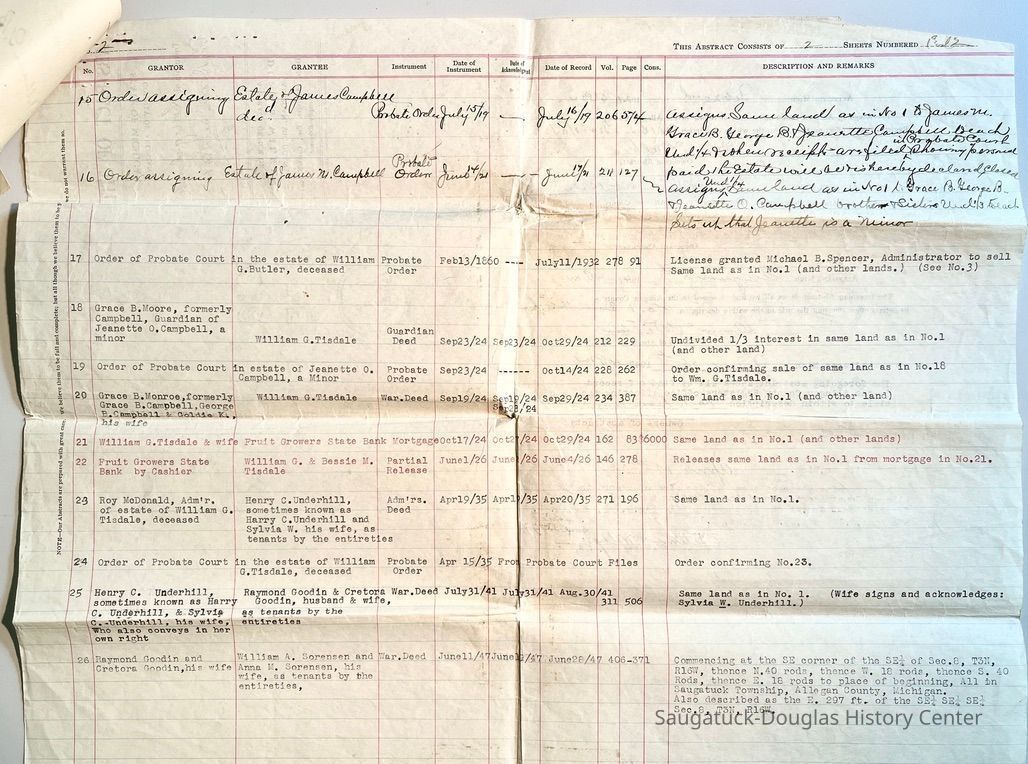 THIS ABSTRACT CONSISTS OF 2 SHEETS NUMBERED 1 & 2
No. GRANTOR GRANTEE Instrument Date of Instrument Date of Acknowledgment Date of Record Vol. Page Cons. DESCRIPTION AND REMARKS
15 Order assigning Estate of James Campbell
dec. Probate Order July 15/19 — July 16/19 206 574 assigns Same land as in No 1 to James M.
Grace B. George B. & Jeanette Campbell Each
Und 1/4
paid the Estate will be closed
16 Order assigning Estate of James M. Campbell Probate Order 211 127 assigns Und 1/4 Same land as in No 1 to Grace B. George B.
& Jeanette O. Campbell brother & Sisters Und 1/3 to each
Sets up that Jeanette is a minor
17 Order of Probate Court in the estate of William Probate Feb13/1860 ---- July11/1932 278 91 License granted Michael B.Spencer, Administrator to sell
G.Butler, deceased Order Same land as in No.1 (and other lands.) (See No.3)
18
Grace B.Moore, formerly
Campbell, Guardian of
Jeanette O.Campbell, a Guardian
minor William G.Tisdale Deed Sep23/24 Sep23/24 Oct29/24 212 229 Undivided 1/3 interest in same land as in No.1
(and other land)
19 Order of Probate Court in estate of Jeanette O. Probate Sep23/24 ------ Oct14/24 228 262 Order confirming sale of same land as in No.18
Campbell, a Minor Order to Wm. G.Tisdale.
20 Grace B.Monroe,formerly William G.Tisdale War.Deed Sep19/24 Sep19/24 Sep29/24 234 387 Same land as in No.1 (and other land)
Grace B.Campbell,George Sep23/24
B.Campbell & Goldie K.,
his wife
21 William G.Tisdale & wife Fruit Growers State Bank Mortgage Oct17/24 Oct27/24 Oct29/24 162 83 $6000 Same land as in No.1 (and other lands)
22 Fruit Growers State William G. & Bessie M. Partial June1/26 June2/26 June4/26 146 278 Releases same land as in No.1 from mortgage in No.21.
Bank by Cashier Tisdale Release
23 Roy McDonald, Adm'r. Henry C.Underhill, Adm'rs. Apr19/35 Apr19/35 Apr20/35 271 196 Same land as in No.1.
of estate of William G. sometimes known as Deed
Tisdale, deceased Harry C.Underhill and
Sylvia W. his wife, as
tenants by the entireties
24 Order of Probate Court in the estate of William Probate Apr 15/35 From Probate Court Files Order confirming No.23.
G.Tisdale, deceased Order
25 Henry C. Underhill, Raymond Goodin & Cretora War.Deed July31/41 July31/41 Aug.30/41 Same land as in No. 1. (Wife signs and acknowledges:
sometimes known as Harry Goodin, husband & wife, 311 506 Sylvia W. Underhill.)
C. Underhill, & Sylvia as tenants by the
C. Underhill, his wife, entireties
who also conveys in her
own right
26 Raymond Goodin and William A. Sorensen and War.Deed June11/47 June11/47 June28/47 406-371 Commencing at the SE corner of the SE¼ of Sec.8, T3N,
Cretora Goodin,his wife Anna M. Sorensen, his R16W, thence N.40 rods, thence W. 18 rods, thence S. 40
wife, as tenants by the Rods, thence E. 18 rods to place of beginning, All in
entireties, Saugatuck Township, Allegan County, Michigan.
Also described as the E. 297 ft. of the SE¼ SE¼ SE¼
Sec.8, T3N, R16W.
Saugatuck-Douglas History Center